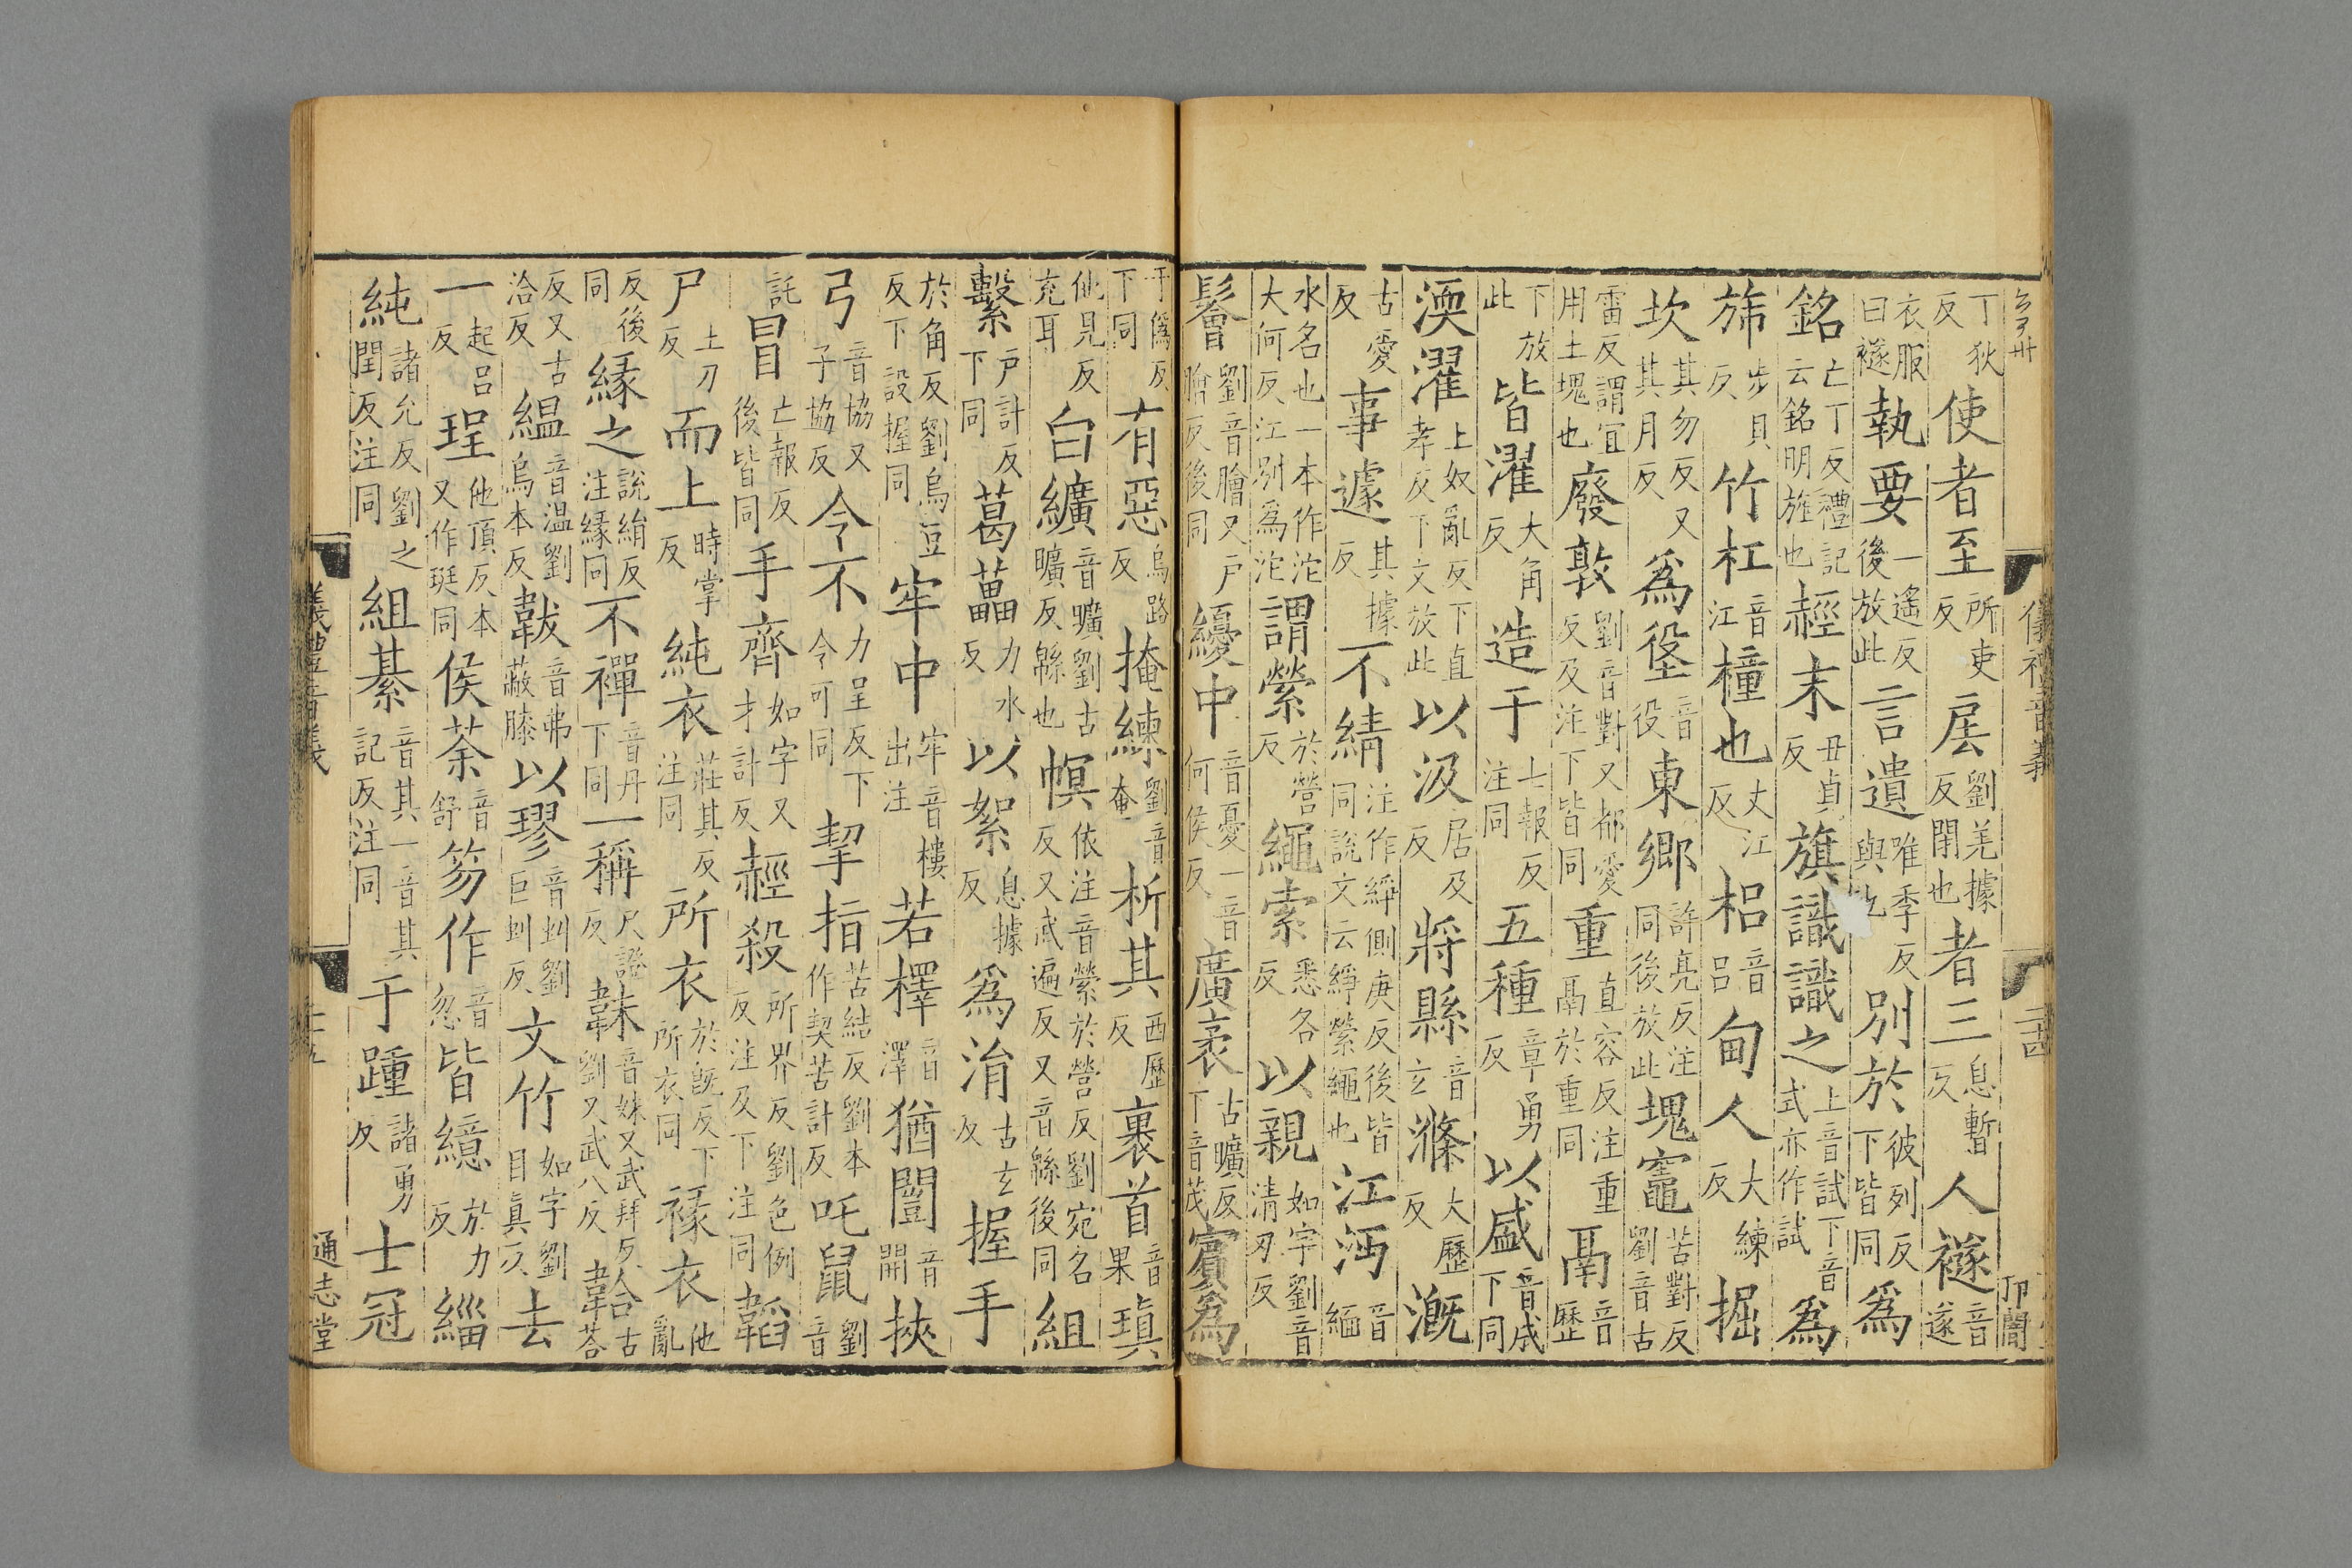 儀禮音義
丁狄反使者至所吏反扂劉羌據反閉也者三息暫反人襚音遂
衣服曰襚執要一遙反後放此言遺唯季反與也別於彼列反下皆同為
銘亡丁反禮記云銘明旌也赬末丑貞反旗識識之上音試下音式亦作試為
斾步貝反竹杠音江橦也丈江反梠音呂甸人大練反掘
坎其勿反又其月反為垼音役東鄉許亮反注同後放此塊竈苦對反劉音古
雷反謂冝用土塊也廢敦劉音對又都愛反及注下皆同重直容反注重鬲於重同鬲音歷
下放此皆濯大角反造于七報反注同五種章勇反以盛音成下同
渜濯上奴亂反下直孝反下文放此以汲居及反將縣音玄滌大歷反溉
古愛反事遽其據反不綪注作綪側庚反後皆同說文云綪縈繩也江沔音緬
水名也一本作沱沱大何反江別為沱謂縈於營反繩索悉各反以親如字劉音清刃反
鬠劉音膾又戶膾反後同纋中音憂一音何侯反廣袤古曠反下音茂賓為
于偽反下同有惡烏路反掩練劉音奄析其西歷反裹首音果瑱
他見反充耳白纊音曠劉古曠反緜也幎依注音縈於營反劉宛名反又武遍反又音緜後同組
繫戶計反下同葛藟力水反以絮息據反為涓古玄反握手
於角反劉烏豆反下設握同牢中牢音樓出注若檡音澤猶闓音開挾
弓音協又子協反令不力呈反下令可同挈指苦結反劉本作契苦計反吒鼠劉音
託冒亡報反後皆同手齊如字又才計反赬殺所界反劉色例反注及下注同韜
尸土刀反而上時掌反純衣莊其反注同所衣於既反下所衣同褖衣他亂
反後同緣之說絹反注緣同不禪音丹下同一稱尺證反韎音妹又武拜反劉又武八反韐古荅
反又古洽反縕音温劉烏本反韍音弗蔽膝以璆音虯劉巨虯反文竹如字劉目真反去
一起呂反珵他頂反本又作珽同侯荼音舒笏作音忽皆繶於力反緇
純諸允反劉之閏反注同組綦音其一音其記反注同于踵諸勇反士冠
儀禮音義
通志堂